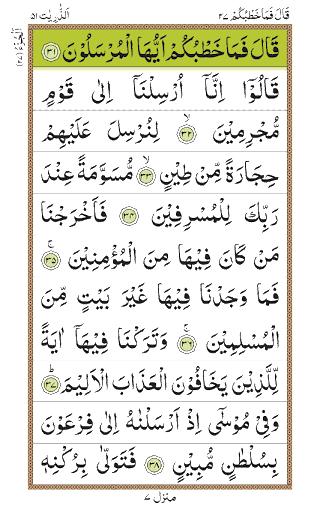 قَالَ فَمَا خَطْبُكُمْ ٢٧
اَلذّٰرِيٰت ٥١
اَلْجُزْءُ (٢٧)
قَالَ فَمَا خَطْبُكُمْ اَيُّهَا الْمُرْسَلُوْنَ ٣١
قَالُوْٓا اِنَّآ اُرْسِلْنَآ اِلٰى قَوْمٍ
مُّجْرِمِيْنَ ۙ ٣٢ لِنُرْسِلَ عَلَيْهِمْ
حِجَارَةً مِّنْ طِيْنٍ ۙ ٣٣ مُّسَوَّمَةً عِنْدَ
رَبِّكَ لِلْمُسْرِفِيْنَ ٣٤ فَاَخْرَجْنَا
مَنْ كَانَ فِيْهَا مِنَ الْمُؤْمِنِيْنَ ۚ ٣٥
فَمَا وَجَدْنَا فِيْهَا غَيْرَ بَيْتٍ مِّنَ
الْمُسْلِمِيْنَ ۚ ٣٦ وَتَرَكْنَا فِيْهَآ اٰيَةً
لِّلَّذِيْنَ يَخَافُوْنَ الْعَذَابَ الْاَلِيْمَ ؕ ٣٧
وَفِيْ مُوْسٰٓى اِذْ اَرْسَلْنٰهُ اِلٰى فِرْعَوْنَ
بِسُلْطٰنٍ مُّبِيْنٍ ٣٨ فَتَوَلّٰى بِرُكْنِهٖ
منزل ٧